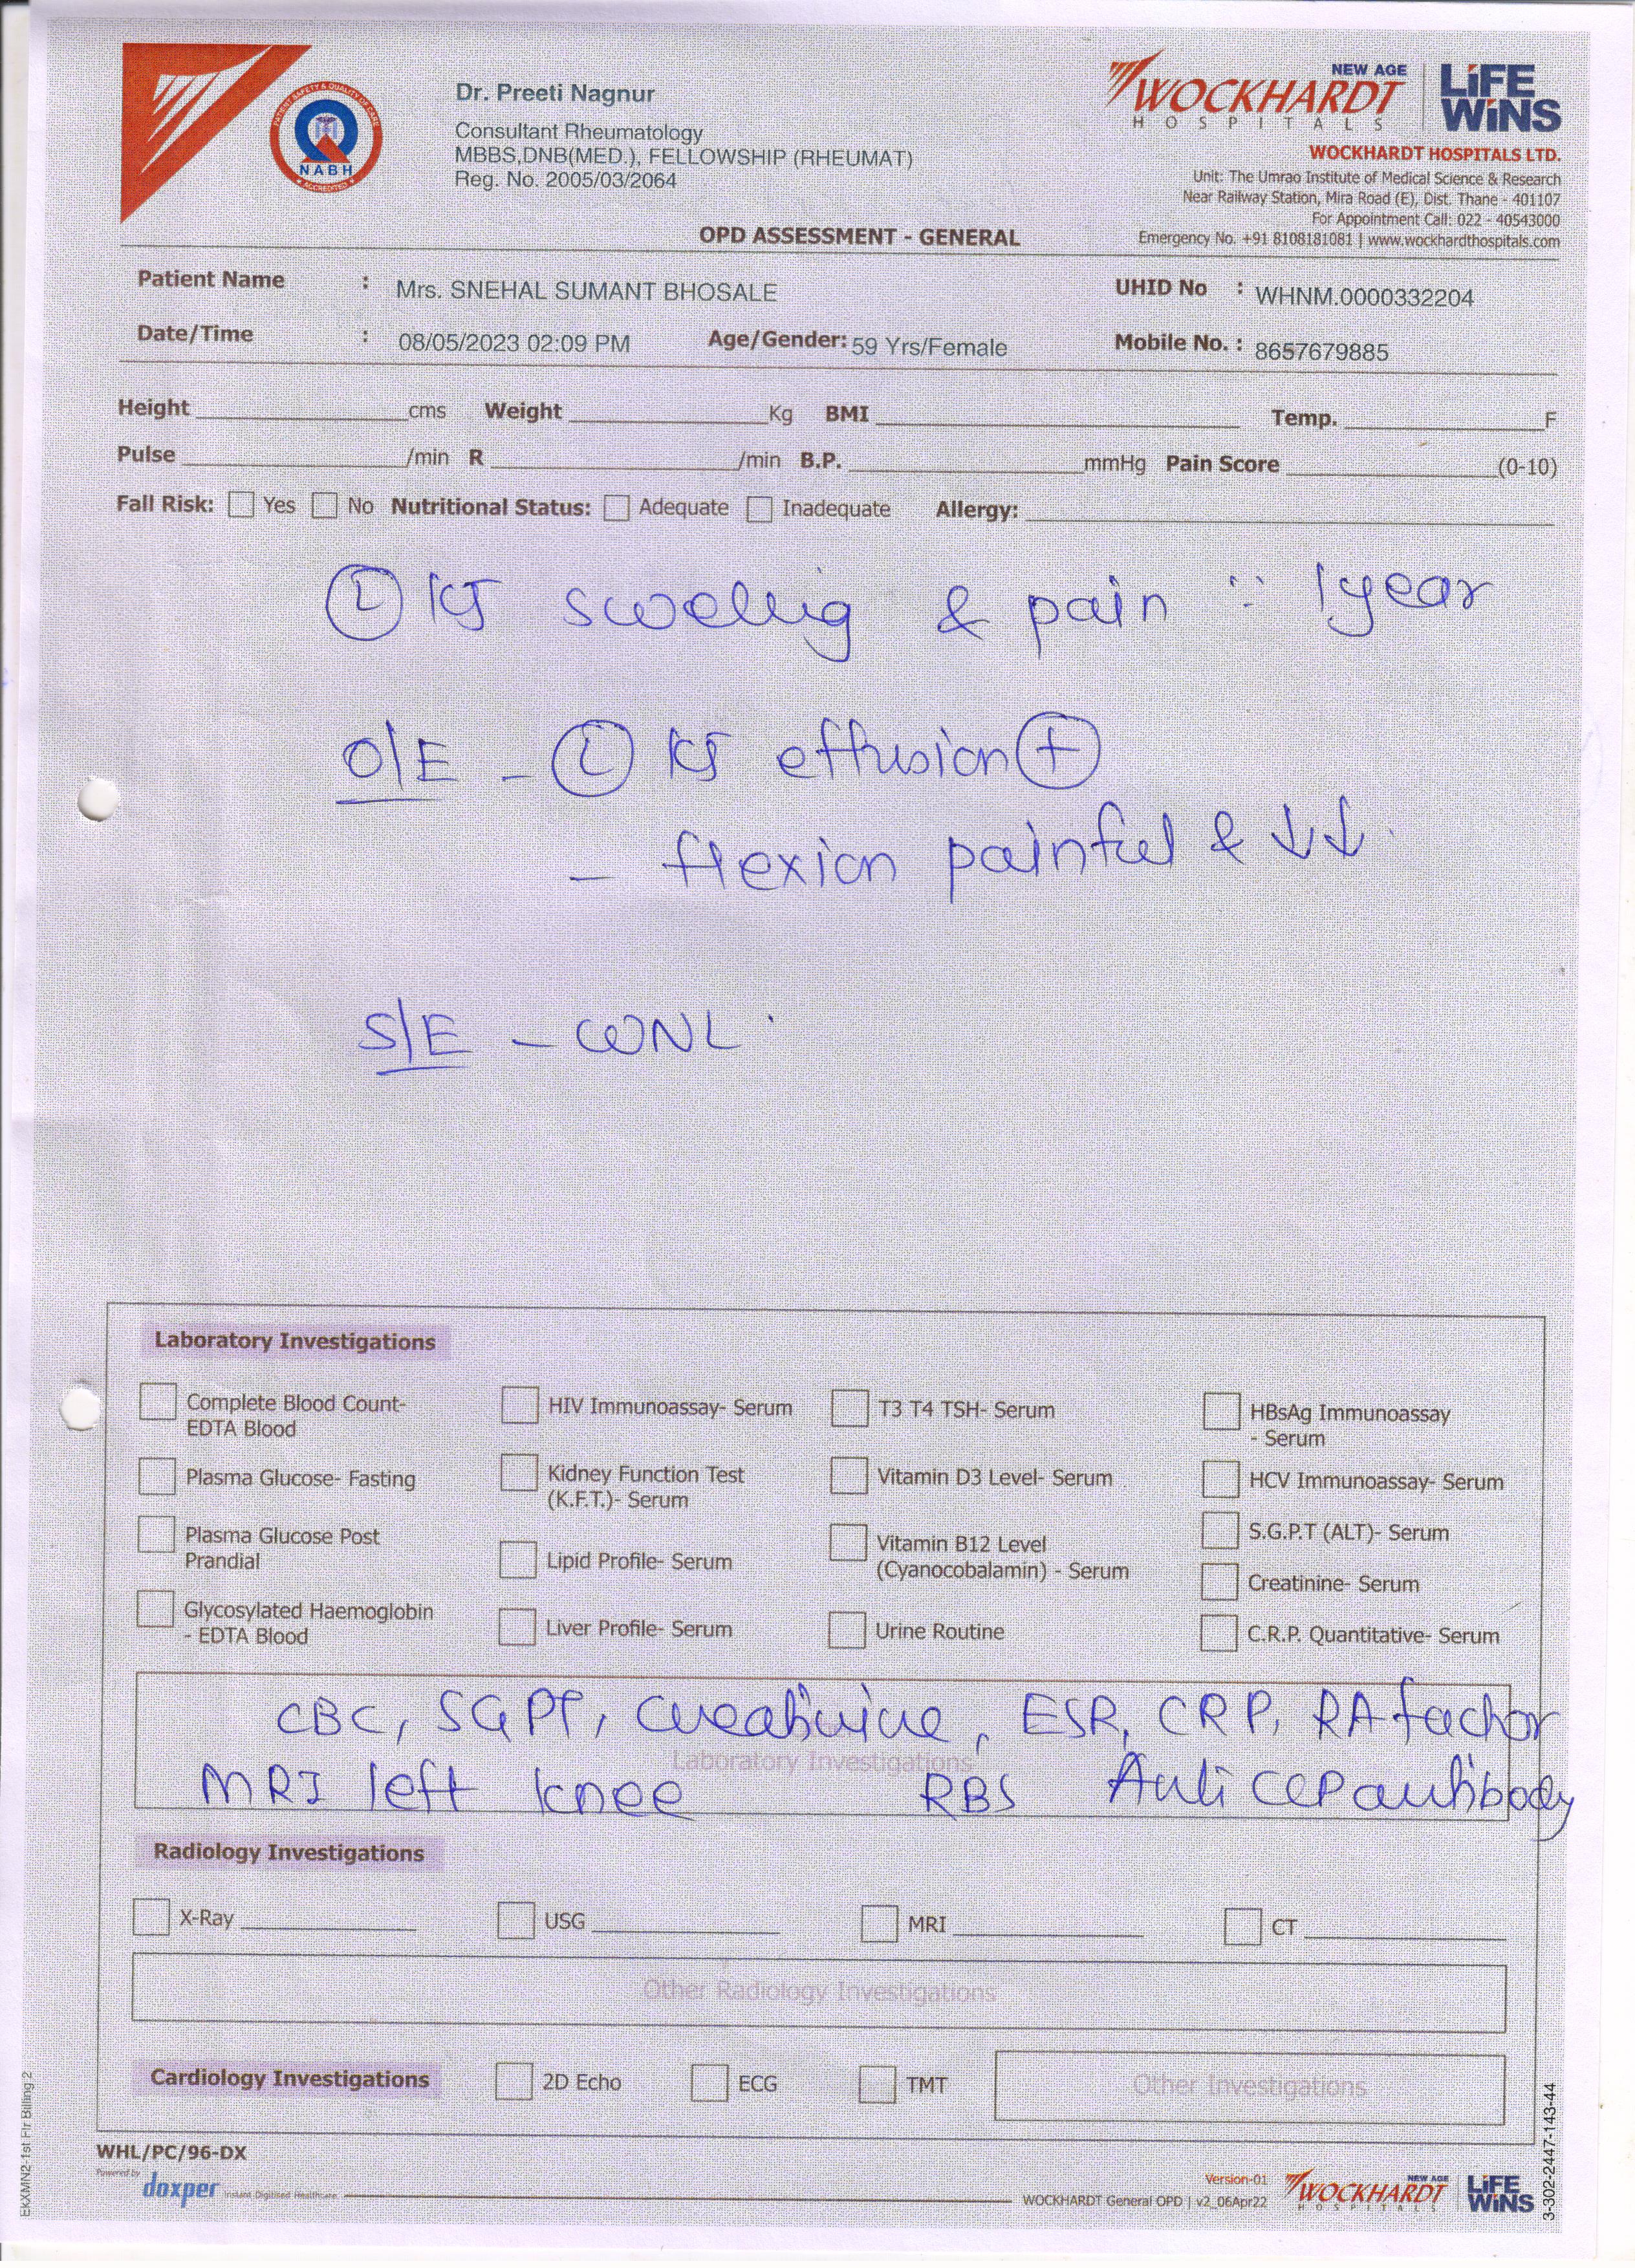 Dr. Preeti Nagnur
Consultant Rheumatology
MBBS,DNB(MED.), FELLOWSHIP (RHEUMAT)
Reg. No. 2005/03/2064
PATIENT SAFETY & QUALITY OF CARE
NABH
ACCREDITED
NEW AGE
WOCKHARDT
HOSPITALS
LiFE
WiNS
WOCKHARDT HOSPITALS LTD.
Unit: The Umrao Institute of Medical Science & Research
Near Railway Station, Mira Road (E), Dist. Thane - 401107
For Appointment Call: 022 - 40543000
Emergency No. +91 8108181081 | www.wockhardthospitals.com
OPD ASSESSMENT - GENERAL
Patient Name : Mrs. SNEHAL SUMANT BHOSALE UHID No : WHNM.0000332204
Date/Time : 08/05/2023 02:09 PM Age/Gender: 59 Yrs/Female Mobile No. : 8657679885
Height cms Weight Kg BMI Temp. F
Pulse /min R /min B.P. mmHg Pain Score (0-10)
Fall Risk: Yes No Nutritional Status: Adequate Inadequate Allergy:
Ⓛ KJ swelling & pain ∵ 1year
O/E - Ⓛ KJ effusion ⊕
- flexion painful & ↓↓.
S/E - WNL.
Laboratory Investigations
Complete Blood Count- EDTA Blood
HIV Immunoassay- Serum
T3 T4 TSH- Serum
HBsAg Immunoassay - Serum
Plasma Glucose- Fasting
Kidney Function Test (K.F.T.)- Serum
Vitamin D3 Level- Serum
HCV Immunoassay- Serum
Plasma Glucose Post Prandial
Lipid Profile- Serum
Vitamin B12 Level (Cyanocobalamin) - Serum
S.G.P.T (ALT)- Serum
Creatinine- Serum
Glycosylated Haemoglobin - EDTA Blood
Liver Profile- Serum
Urine Routine
C.R.P. Quantitative- Serum
CBC, SGPT, Creatinine, ESR, CRP, RA factor
Laboratory Investigations
MRI left knee RBS Anti CCP antibody
Radiology Investigations
X-Ray USG MRI CT
Other Radiology Investigations
Cardiology Investigations 2D Echo ECG TMT Other Investigations
WHL/PC/96-DX
Powered by
doxper Instant Digitised Healthcare
Version-01
WOCKHARDT General OPD | v2_06Apr22
NEW AGE
WOCKHARDT
HOSPITALS
LiFE
WiNS
EKXMN2-1st Flr Billing 2
3-302-2447-143-44